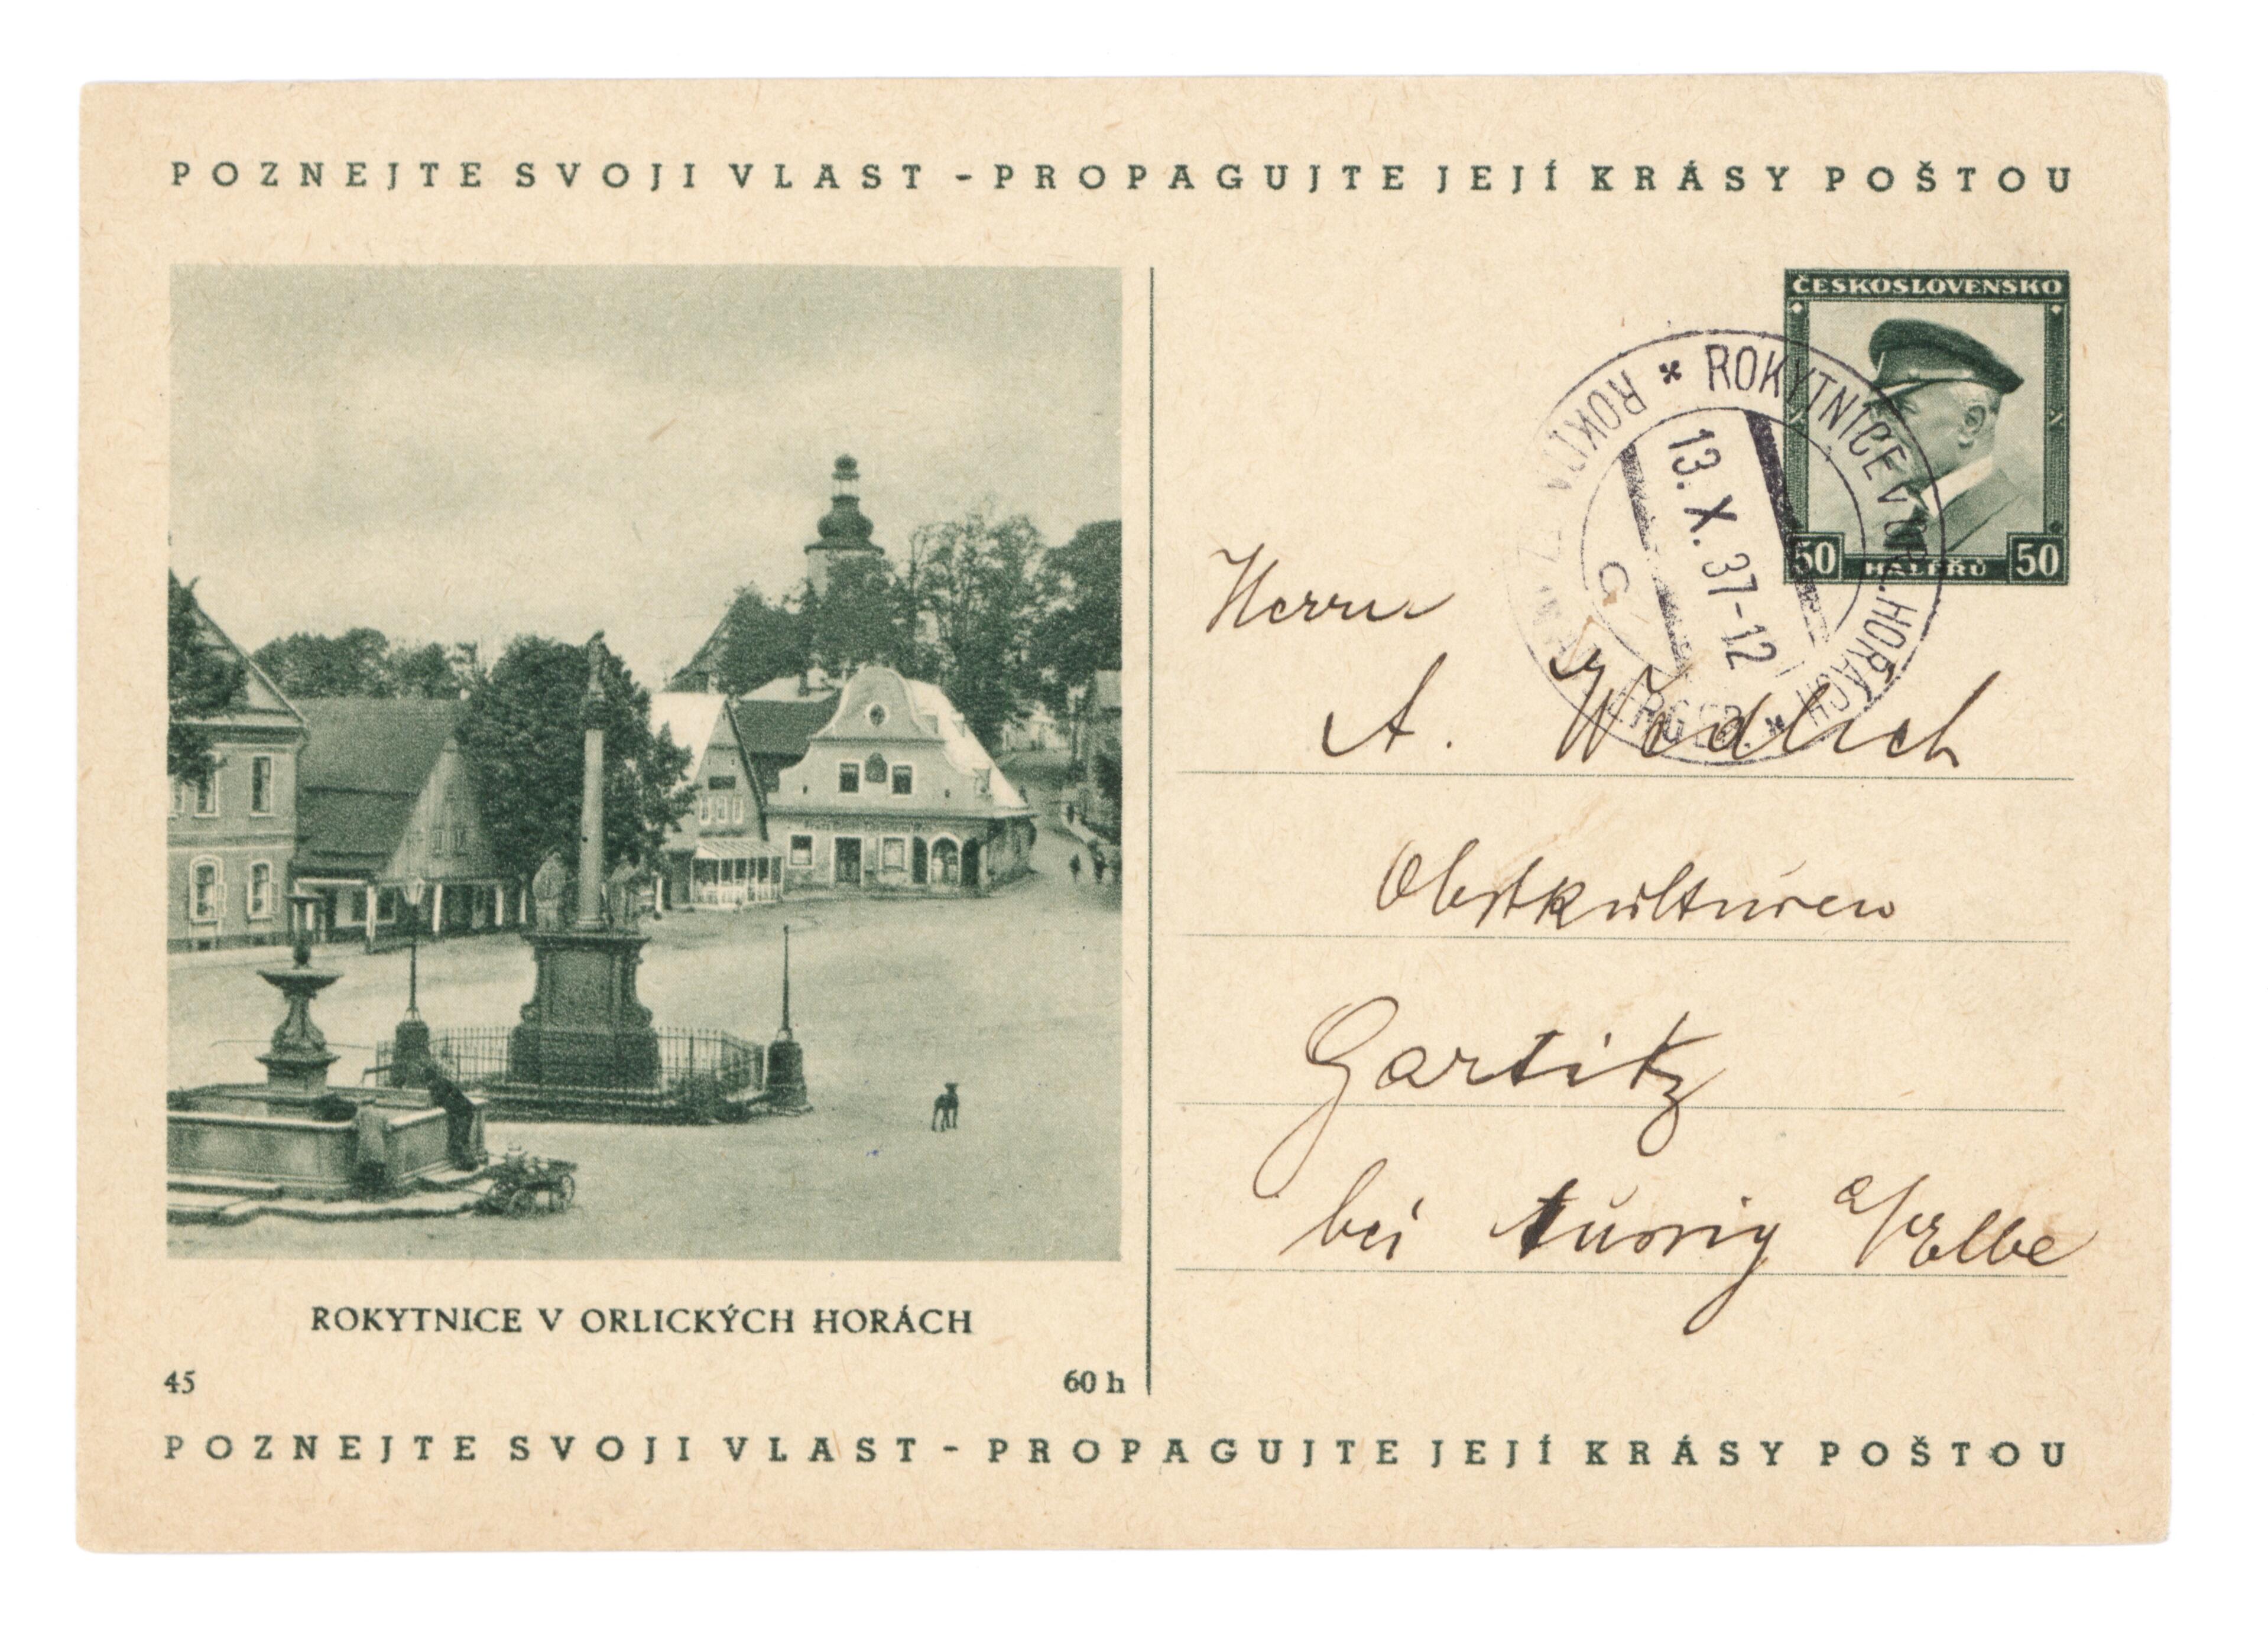 POZNEJTE SVOJI VLAST - PROPAGUJTE JEJÍ KRÁSY POŠTOU
ČESKOSLOVENSKO
50 HALÉŘŮ 50
ROKYTNICE V ORL. HORÁCH
13. X. 37-12
Herrn
A. Wedlich
Obstkulturen
Gartitz
bei Aussig a/Elbe
ROKYTNICE V ORLICKÝCH HORÁCH
45
60 h
POZNEJTE SVOJI VLAST - PROPAGUJTE JEJÍ KRÁSY POŠTOU